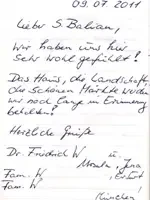 09.07.2011
Lieber S. Balian,
wir haben uns hier
sehr wohl gefühlt!
Das Haus, die Landschaft,
die schönen Märkte werden
wir noch lange in Erinnerung
behalten!
Herzliche Grüße
Dr. Friedrich W u.
Monika, Jena
Fam. W , Erfurt
Fam. W
München